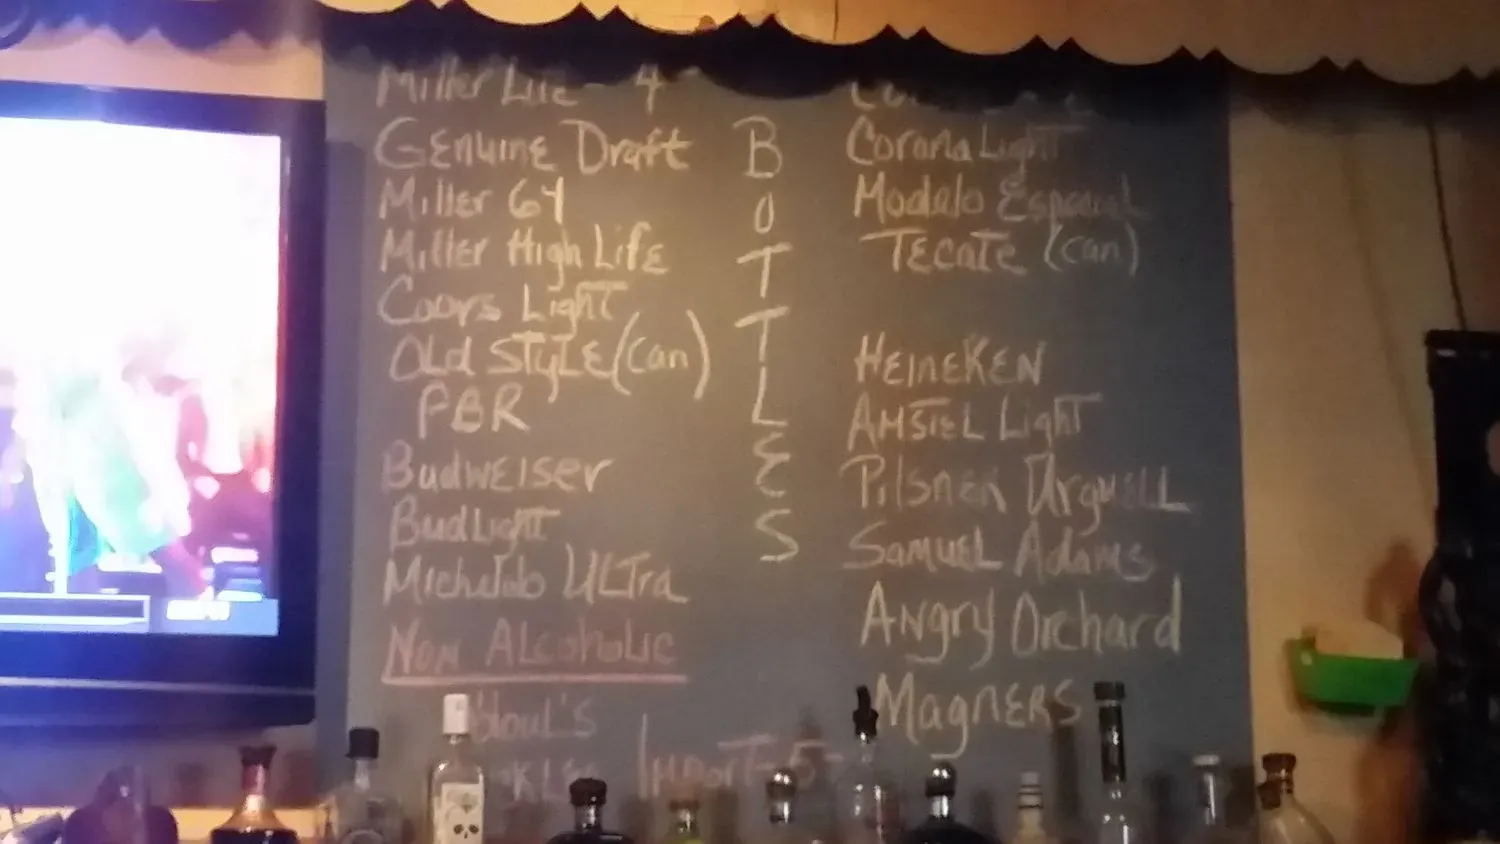 Miller Lite - 4
Genuine Draft
Miller 64
Miller High Life
Coors Light
Old Style (can)
PBR
Budweiser
Bud Light
Michelob Ultra
Non Alcoholic
BOTTLES
Corona Light
Modelo Especial
Tecate (can)
Heineken
Amstel Light
Pilsner Urquell
Samuel Adams
Angry Orchard
Magners
Import - 5 -